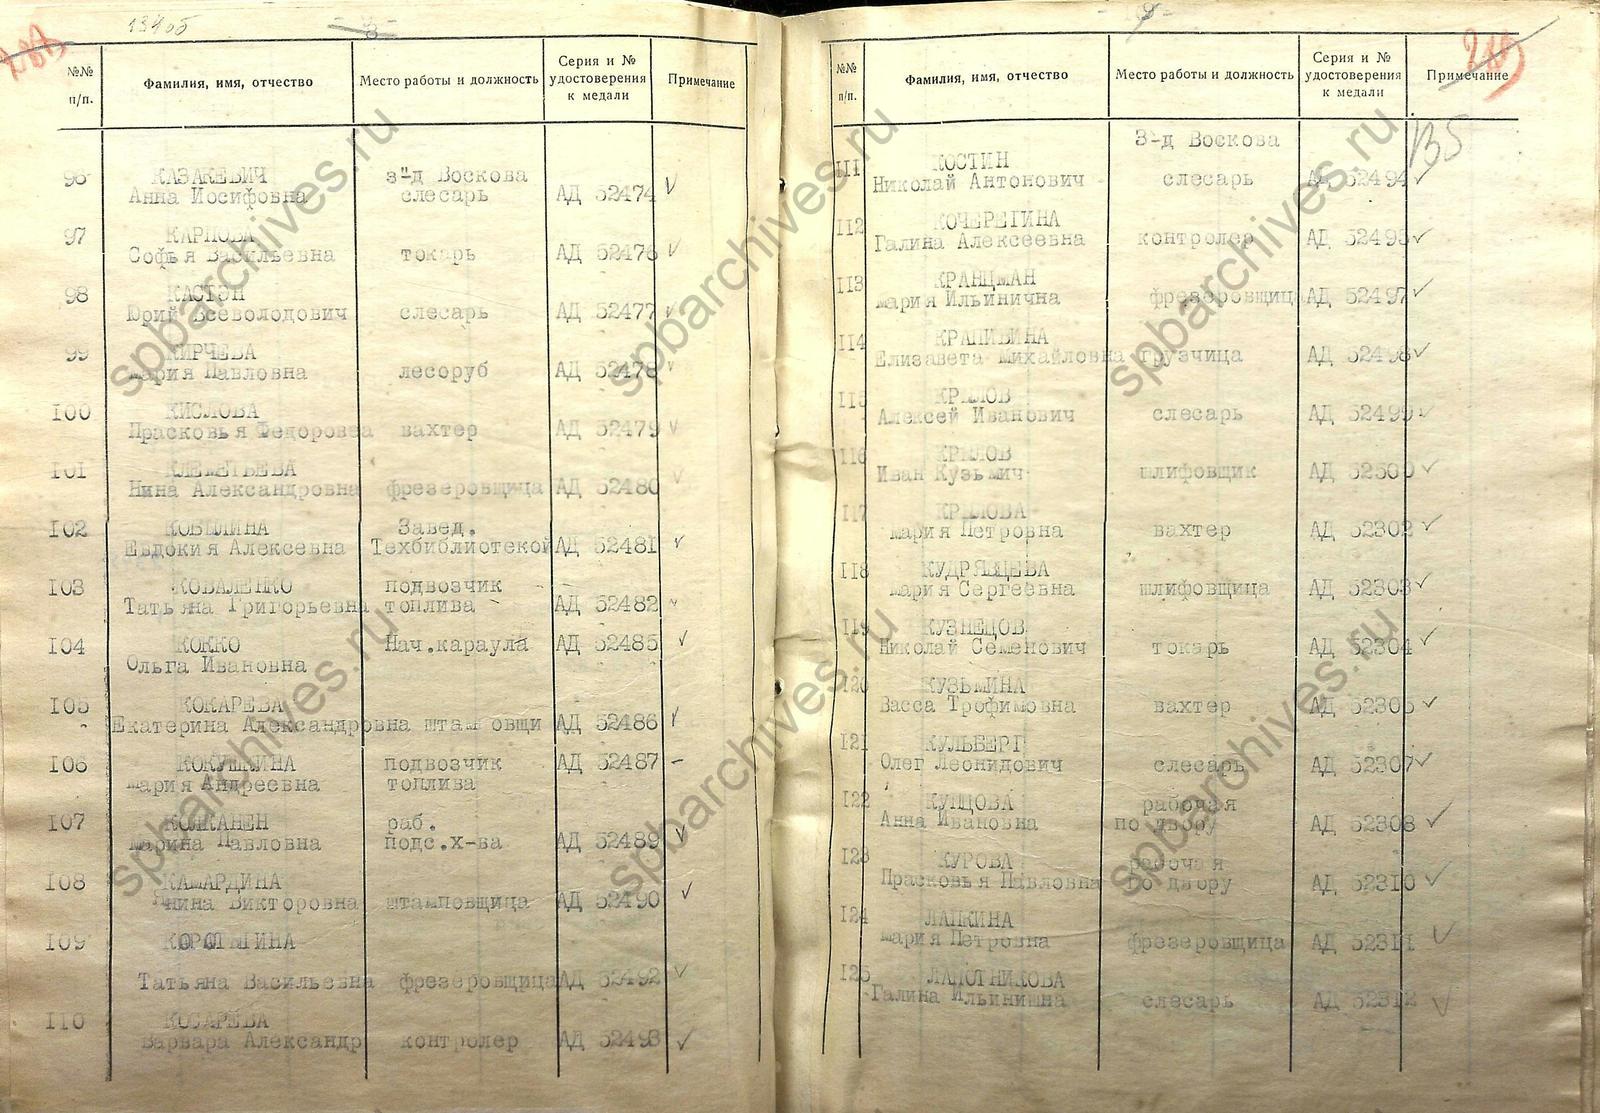 13405
№№ п/п. Фамилия, имя, отчество Место работы и должность Серия и № удостоверения к медали Примечание
96 КАЗАКЕВИЧ з-д Воскова
Анна Иосифовна слесарь АД 52474 ✓
97 КАРПОВА
Софья Васильевна токарь АД 52476 ✓
98 КАСТЭН
Юрий Всеволодович слесарь АД 52477 ✓
99 КИРЧЕВА
Мария Павловна лесоруб АД 52478 ✓
100 КИСЛОВА
Прасковья Федоровна вахтер АД 52479 ✓
101 КЛЕМЕТЬЕВА
Нина Александровна фрезеровщица АД 52480 ✓
102 КОБЫЛИНА Завед.
Евдокия Алексевна Техбиблиотекой АД 52481 ✓
103 КОВАЛЕНКО подвозчик
Татьяна Григорьевна топлива АД 52482 ✓
104 КОККО Нач.караула АД 52485 ✓
Ольга Ивановна
105 КОКАРЕВА
Екатерина Александровна штамповщи АД 52486 ✓
106 КОКУШКИНА подвозчик АД 52487 –
Мария Андреевна топлива
107 КОЛКАНЕН раб.
Марина Павловна подс.х-ва АД 52489 ✓
108 КАМАРДИНА
Викторовна штамповщица АД 52490 ✓
109
Татьяна Васильевна фрезеровщица АД 52492 ✓
110 КОСАРЕВА
Варвара Александр контролер АД 52493 ✓
№№ п/п. Фамилия, имя, отчество Место работы и должность Серия и № удостоверения к медали Примечание
135
З-д Воскова
111 КОСТИН
Николай Антонович слесарь АД 52494 ✓
112 КОЧЕРЕГИНА
Галина Алексеевна контролер АД 52495 ✓
113 КРАНЦМАН
Мария Ильинична фрезеровщица АД 52497 ✓
114 КРАПИВИНА
Елизавета Михайловна грузчица АД 52498 ✓
115 КРЫЛОВ
Алексей Иванович слесарь АД 52499 ✓
116 КРЫЛОВ
Иван Кузьмич шлифовщик АД 52500 ✓
117 КРЫЛОВА
Мария Петровна вахтер АД 52302 ✓
118 КУДРЯВЦЕВА
Мария Сергеевна шлифовщица АД 52303 ✓
119 КУЗНЕЦОВ
Николай Семенович токарь АД 52304 ✓
120 КУЗЬМИНА
Васса Трофимовна вахтер АД 52305 ✓
121 КУЛЬБЕРГ
Олег Леонидович слесарь АД 52307 ✓
122 КУПЦОВА рабочая
Анна Ивановна по двору АД 52308 ✓
123 КУРОВА рабочая
Прасковья Павловна по двору АД 52310 ✓
124 ЛАПКИНА
Мария Петровна фрезеровщица АД 52311 ✓
125 ЛАПОТНИКОВА
Галина Ильинишна слесарь АД 52312 ✓
spbarchives.ru
spbarchives.ru
spbarchives.ru
spbarchives.ru
spbarchives.ru
spbarchives.ru